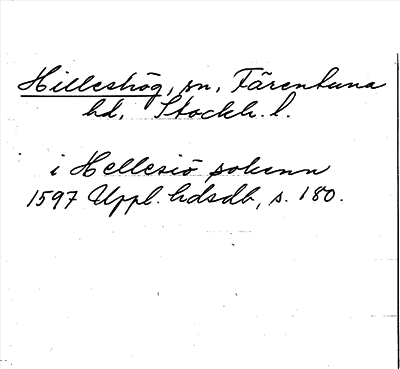 Hilleshög, sn, Färentuna
hd. Stockh. l.
i Hellesiö sokenn
1597 Uppl. hdsdb, s. 180.